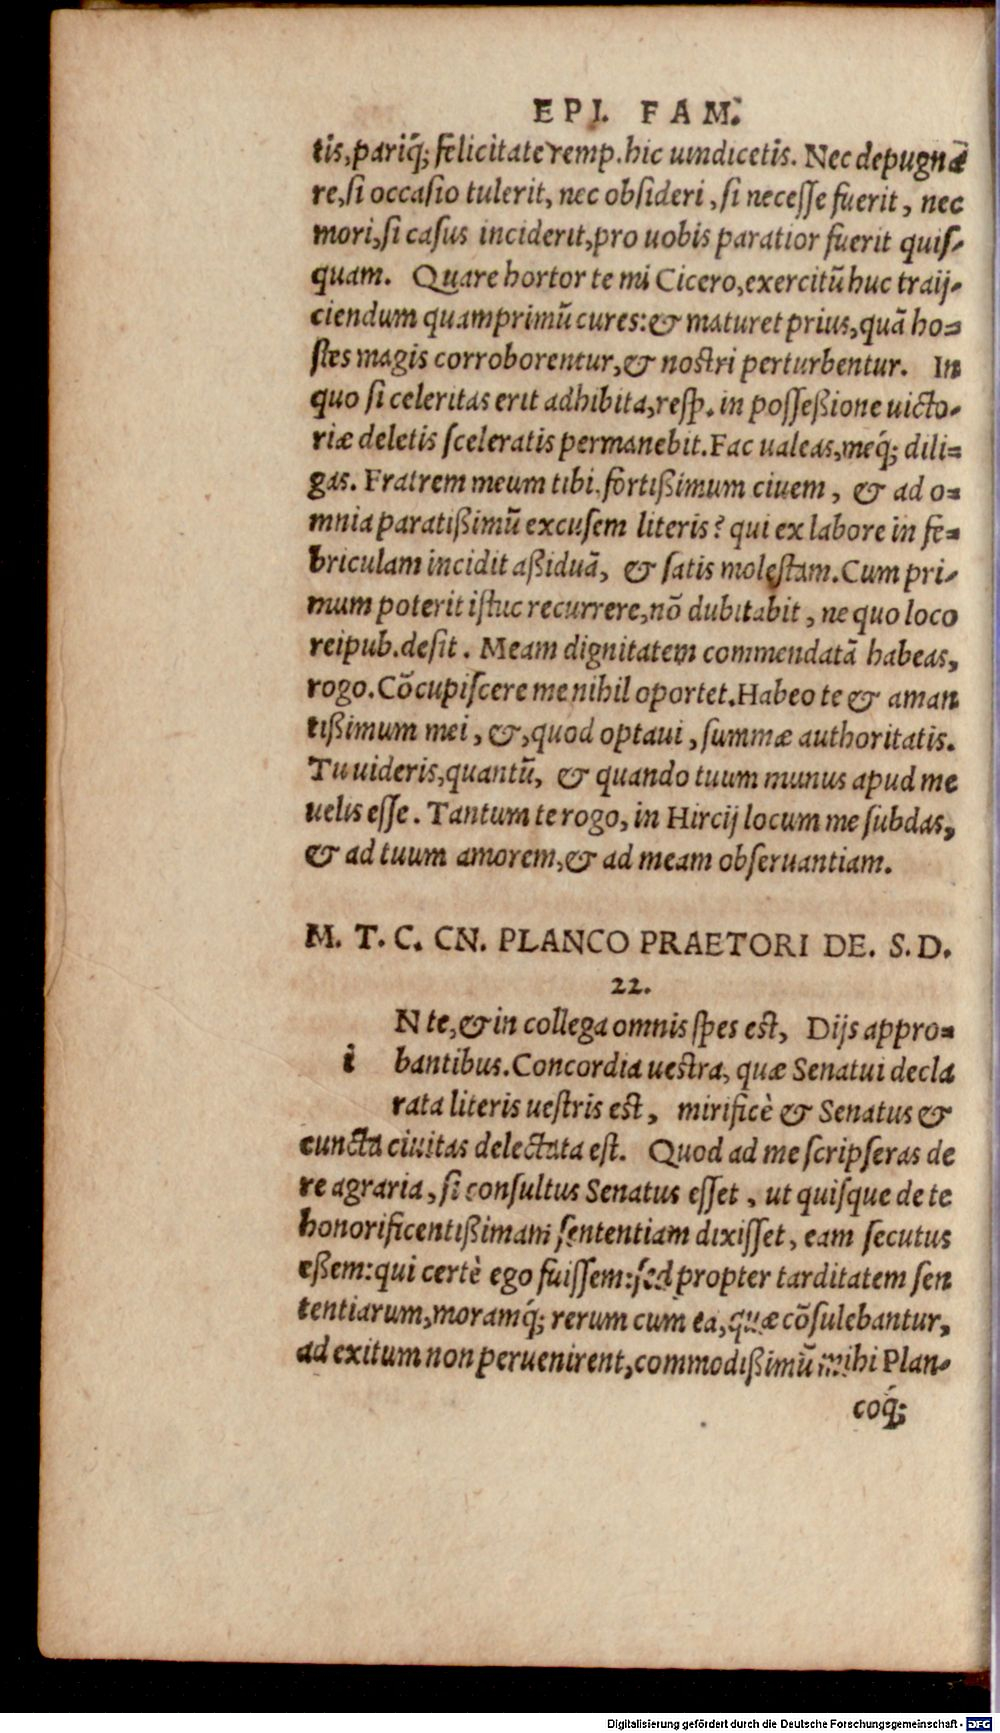 EPI. FAM.
tis, pariq́; felicitate remp. hic uindicetis. Nec depugnā
re, si occasio tulerit, nec obsideri, si necesse fuerit, nec
mori, si casus inciderit, pro uobis paratior fuerit quis-
quam. Quare hortor te mi Cicero, exercitū huc traij-
ciendum quamprimū cures: & maturet prius, quā ho-
stes magis corroborentur, & nostri perturbentur. In
quo si celeritas erit adhibita, resp. in posseßione uicto-
riæ deletis sceleratis permanebit. Fac ualeas, meq́; dili-
gas. Fratrem meum tibi, fortißimum ciuem, & ad o-
mnia paratißimū excusem literis? qui ex labore in fe-
briculam incidit aßiduā, & satis molestam. Cum pri-
mum poterit istuc recurrere, nō dubitabit, ne quo loco
reipub. desit. Meam dignitatem commendatā habeas,
rogo. Cōcupiscere me nihil oportet. Habeo te & aman
tißimum mei, &, quod optaui, summæ authoritatis.
Tu uideris, quantū, & quando tuum munus apud me
uelis esse. Tantum te rogo, in Hircij locum me subdas,
& ad tuum amorem, & ad meam obseruantiam.
M. T. C. CN. PLANCO PRAETORI DE. S. D.
22.
i N te, & in collega omnis spes est, Dijs appro-
bantibus. Concordia uestra, quæ Senatui decla
rata literis uestris est, mirificè & Senatus &
cuncta ciuitas delectata est. Quod ad me scripseras de
re agraria, si consultus Senatus esset, ut quisque de te
honorificentißimam sententiam dixisset, eam secutus
eßem: qui certè ego fuissem: sed propter tarditatem sen
tentiarum, moramq́; rerum cum ea, quæ cōsulebantur,
ad exitum non peruenirent, commodißimū mihi Plan-
coq́;
Digitalisierung gefördert durch die Deutsche Forschungsgemeinschaft - DFG